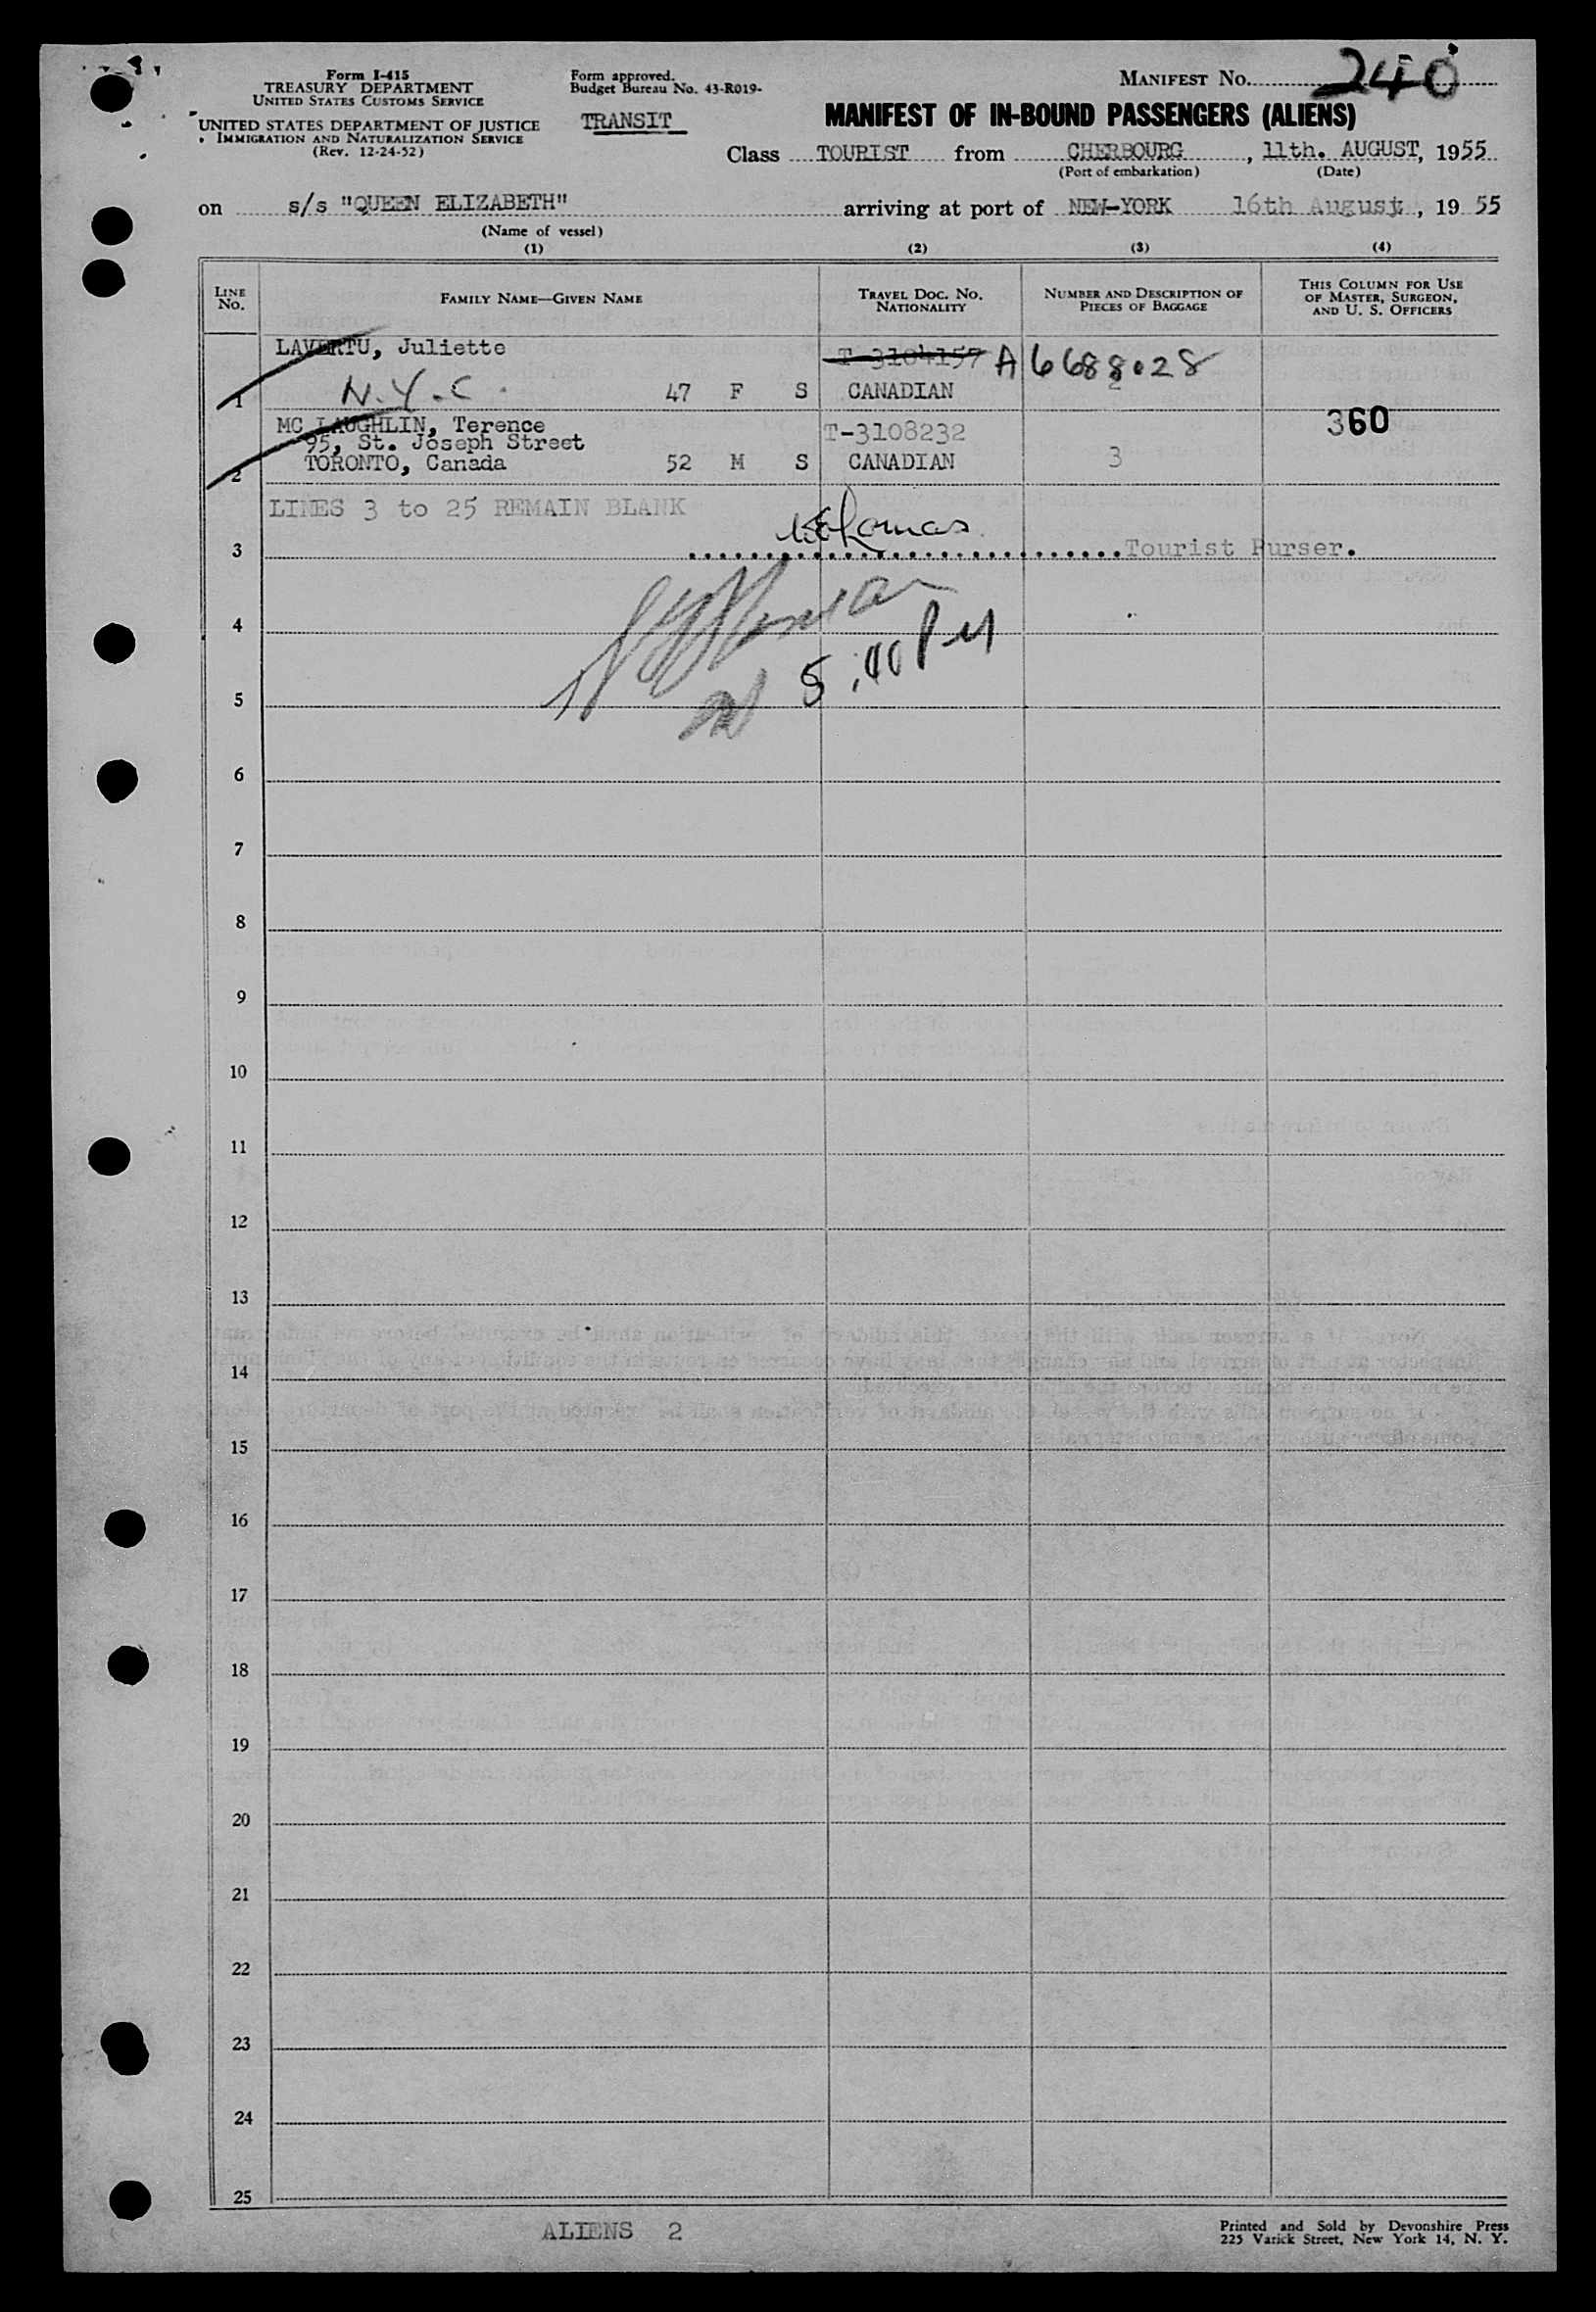 Form I-415
TREASURY DEPARTMENT
UNITED STATES CUSTOMS SERVICE
UNITED STATES DEPARTMENT OF JUSTICE
IMMIGRATION AND NATURALIZATION SERVICE
(Rev. 12-24-52)
Form approved.
Budget Bureau No. 43-R019-
TRANSIT
MANIFEST NO. 240
MANIFEST OF IN-BOUND PASSENGERS (ALIENS)
Class TOURIST from CHERBOURG, 11th. AUGUST, 1955
(Port of embarkation) (Date)
on s/s "QUEEN ELIZABETH" arriving at port of NEW-YORK 16th August, 1955
(Name of vessel)
(1) (2) (3) (4)
LINE NO.
FAMILY NAME—GIVEN NAME
TRAVEL DOC. NO.
NATIONALITY
NUMBER AND DESCRIPTION OF
PIECES OF BAGGAGE
THIS COLUMN FOR USE
OF MASTER, SURGEON,
AND U. S. OFFICERS
LAVERTU, Juliette T-3104157 A6688028
1 N.Y.C. 47 F S CANADIAN 2
MC LAUGHLIN, Terence T-3108232 360
95, St. Joseph Street
2 TORONTO, Canada 52 M S CANADIAN 3
LINES 3 to 25 REMAIN BLANK
3 Tourist Purser.
4
5:40 PM
5
6
7
8
9
10
11
12
13
14
15
16
17
18
19
20
21
22
23
24
25
ALIENS 2
Printed and Sold by Devonshire Press
225 Varick Street, New York 14, N. Y.